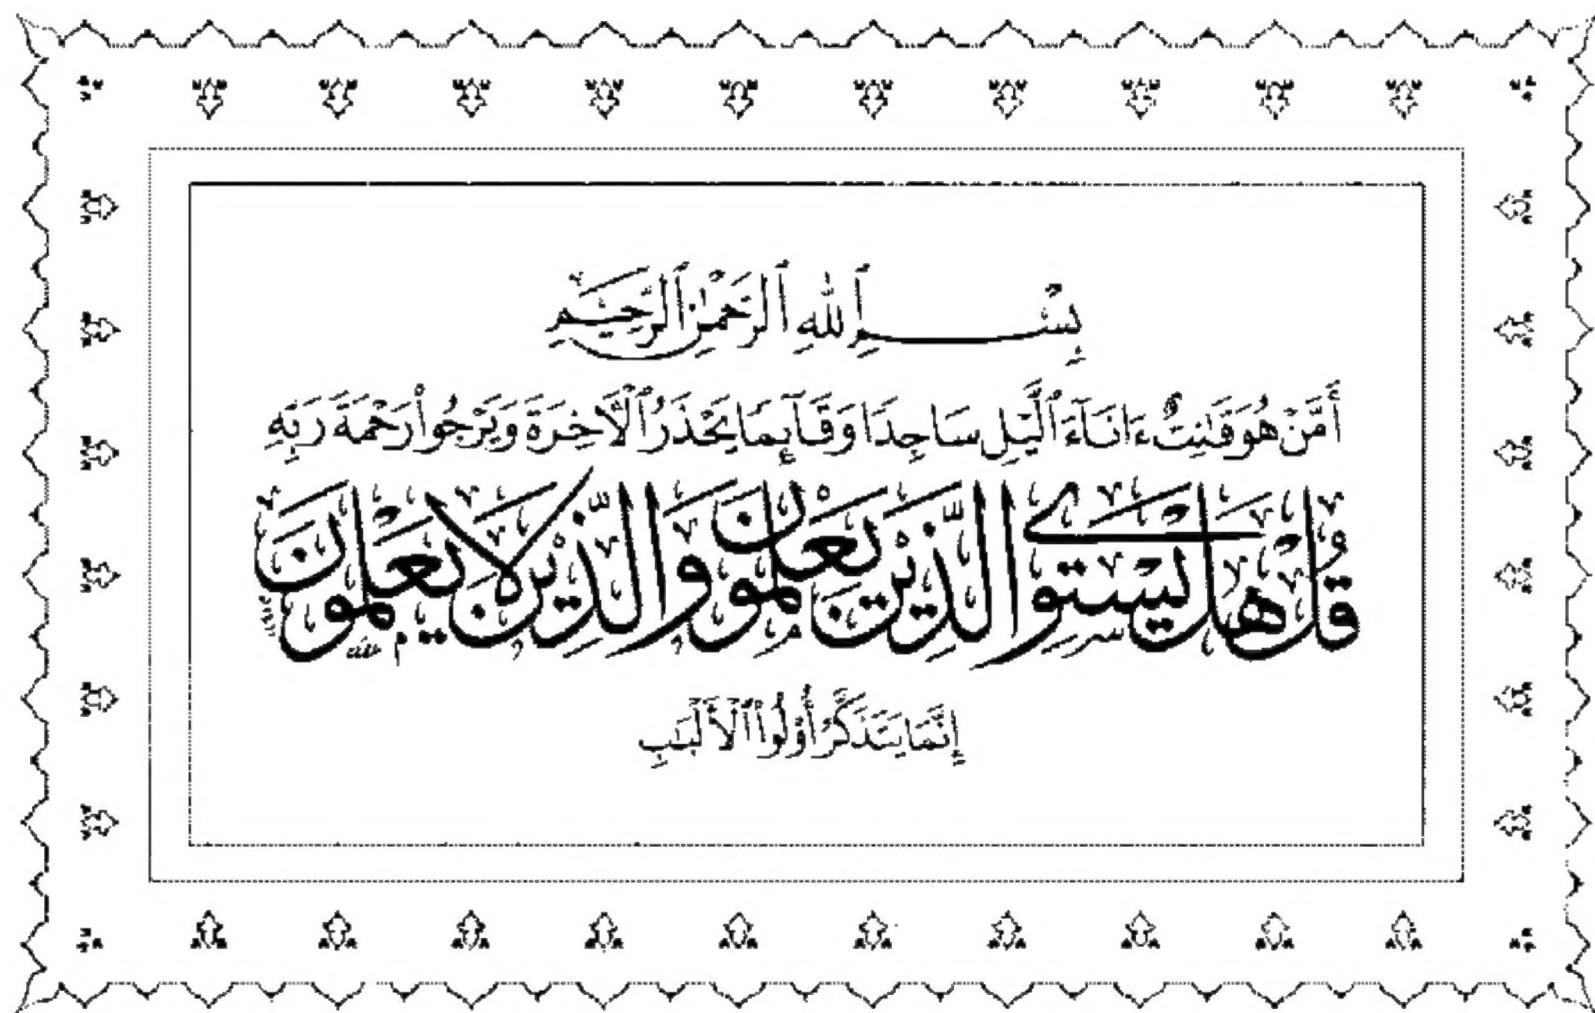 بِسْمِ ٱللَّهِ ٱلرَّحْمَٰنِ ٱلرَّحِيمِ
أَمَّنْ هُوَ قَٰنِتٌ ءَانَآءَ ٱلَّيْلِ سَاجِدًا وَقَآئِمًا يَحْذَرُ ٱلْأَخِرَةَ وَيَرْجُوا۟ رَحْمَةَ رَبِّهِ
قُلْ هَلْ يَسْتَوِى الَّذِيْنَ يَعْلَمُوْنَ وَالَّذِيْنَ لَا يَعْلَمُوْنَ
إِنَّمَا يَتَذَكَّرُ أُو۟لُوا۟ ٱلْأَلْبَٰبِ